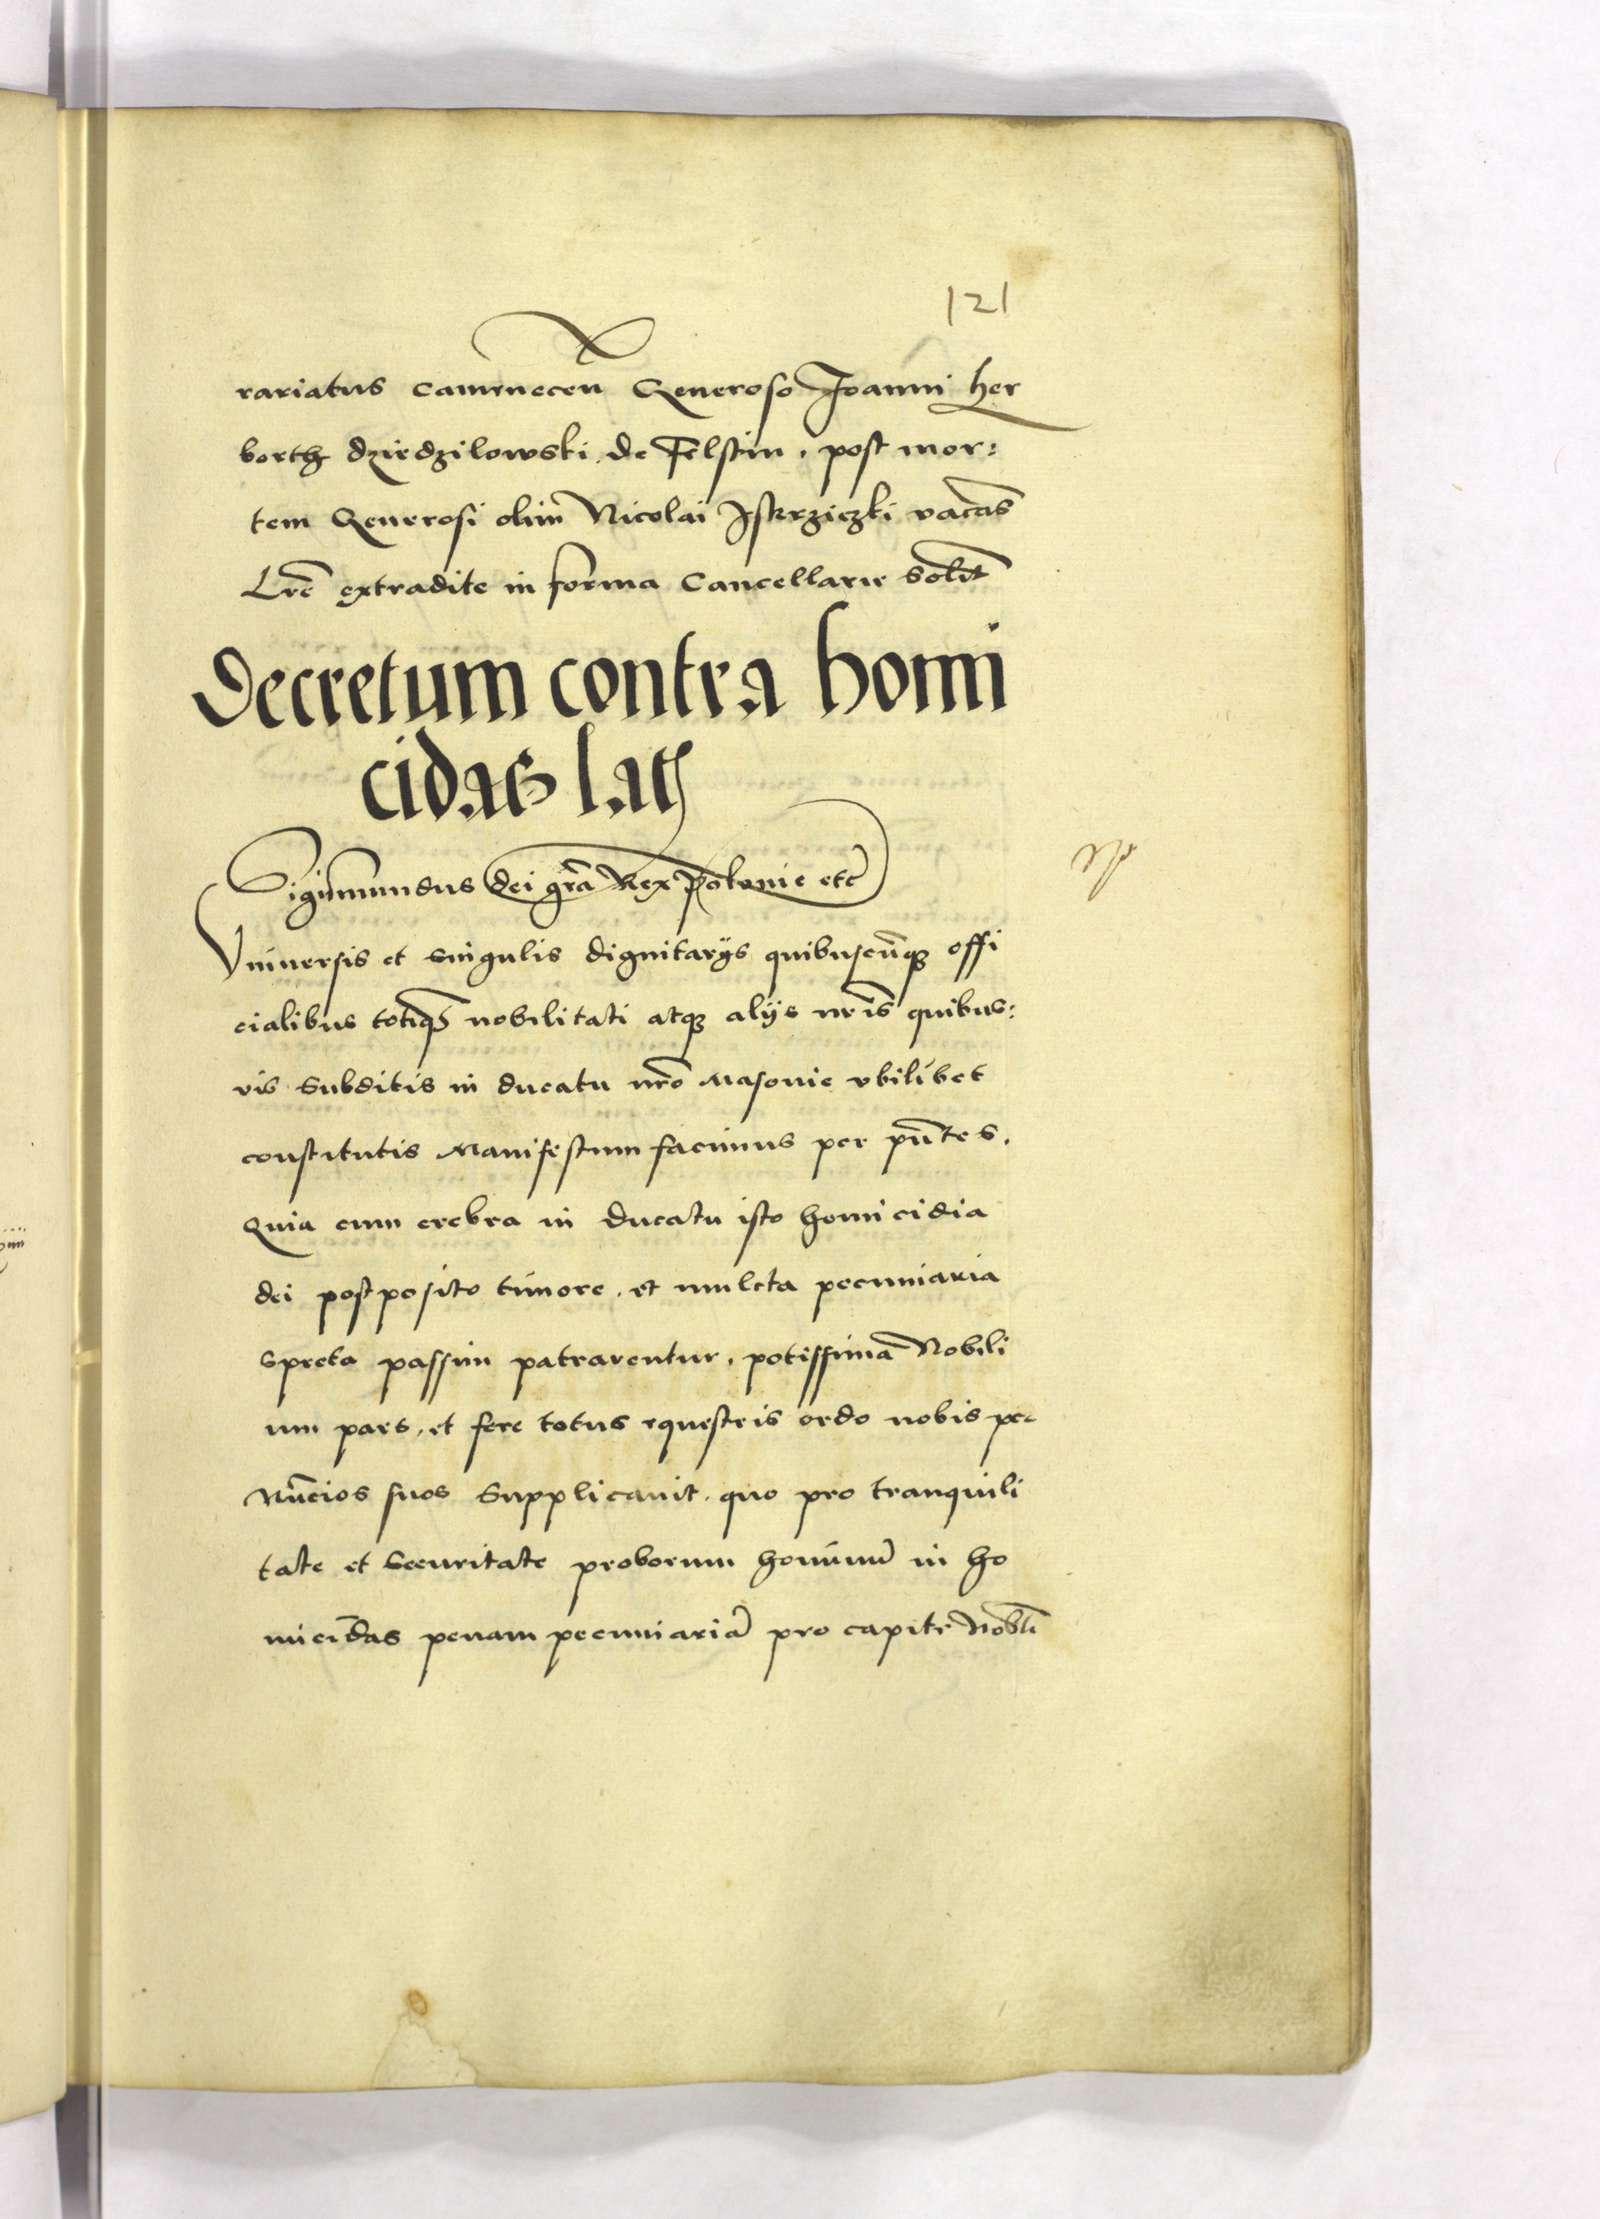 121
rariatus camenecen̄ Generoso Joanni her
borth dziedzilowski de Felstin . post mor:
tem Generosi olim Nicolai Iskrziczki vacās
Lr̄e extradite in forma Cancellarie solit̄
Decretum contra homi
cidas lat
Sigismundus dei gr̄a Rex Polonie etc̄
Vniuersis et singulis dignitarijs quibuscūqꝫ offi
cialibus totiqꝫ nobilitati atqꝫ alijs nr̄is quibus:
vis subditis in ducatu nr̄o Masouie vbilibet
constitutis Manifestum facimus per pn̄tes .
Quia cum crebra in ducatu isto homicidia
dei postposito timore . et mulcta pecuniaria
spreta passim patrarentur . potissima Nobili
um pars . et fere totus equestris ordo nobis per
Nūcios suos supplicauit . quo pro tranquili
tate et securitate proborum hominū in ho
micidas penam pecuniariā pro capite Nobil̄